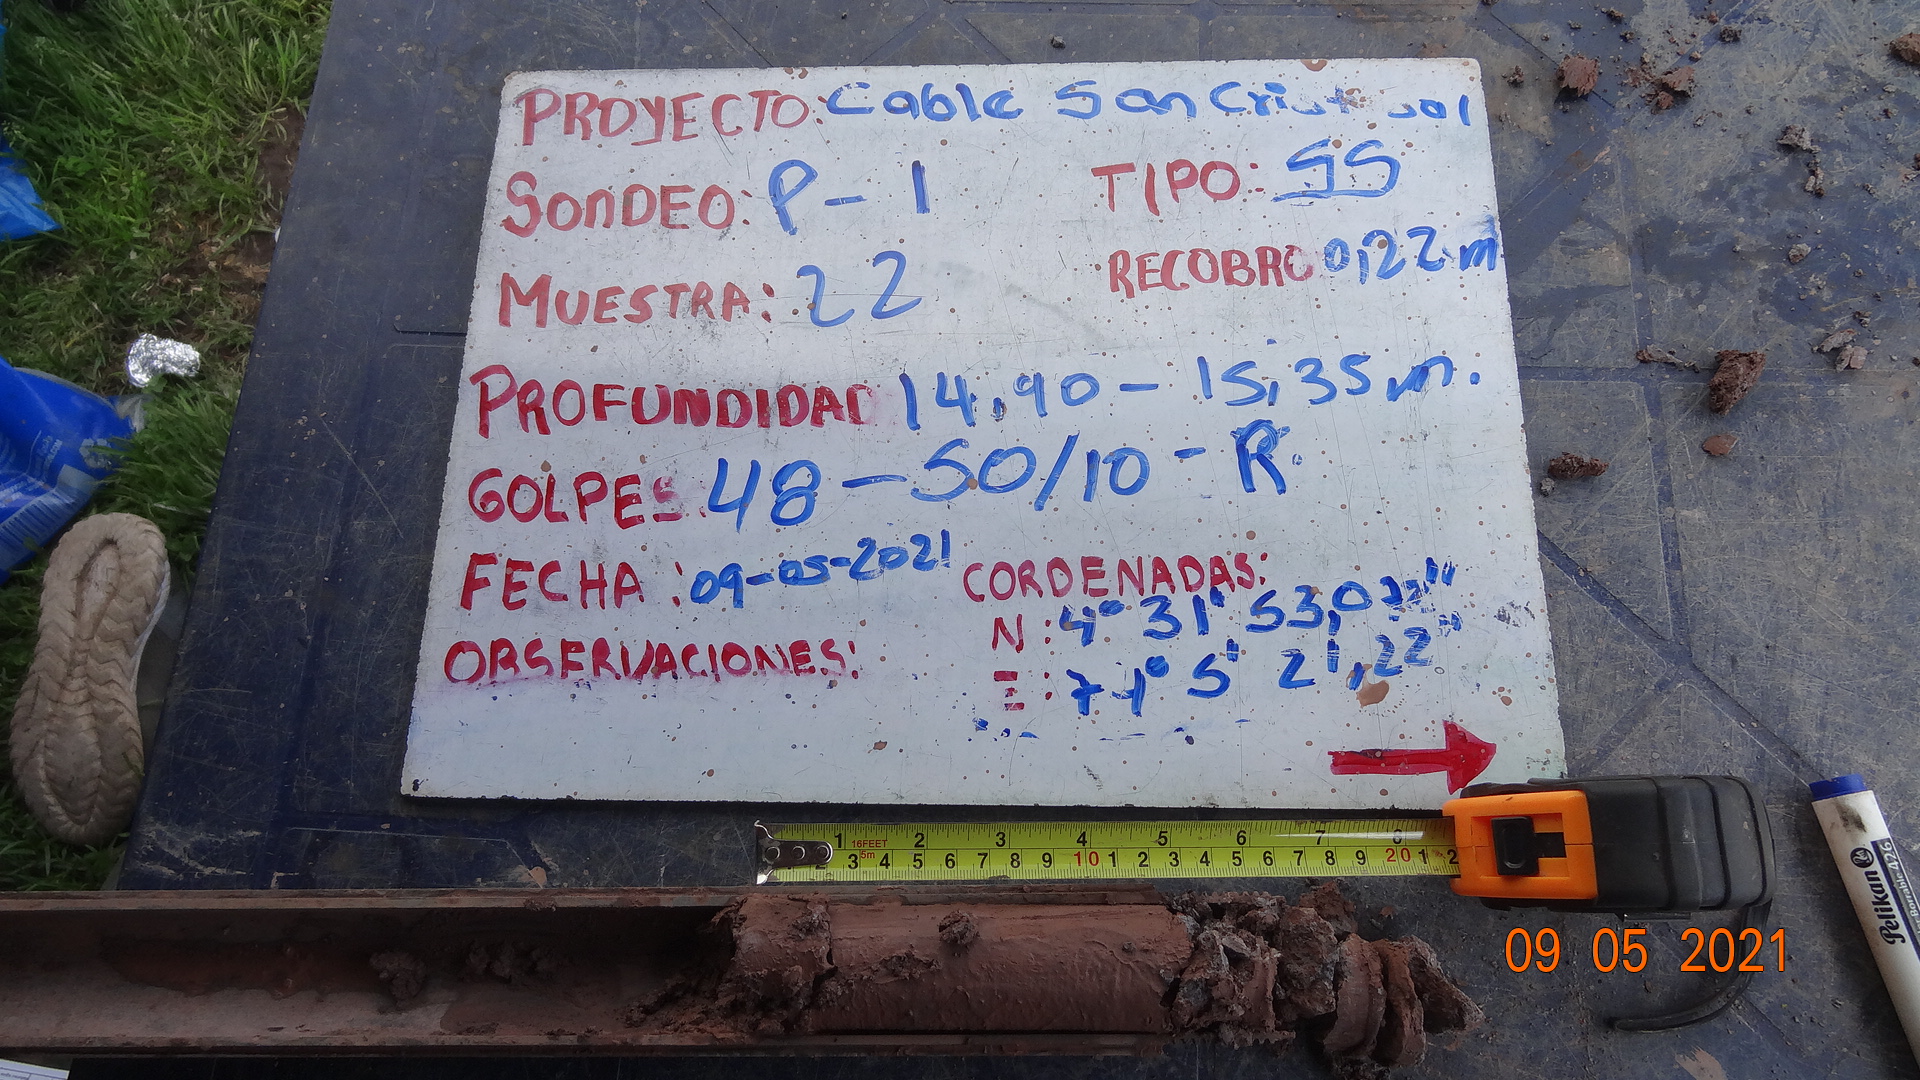 PROYECTO: Cable San Cristobal
SONDEO: P-1
TIPO: SS
MUESTRA: 22
RECOBRO 0,22 m
PROFUNDIDAD 14,90 - 15,35 m.
GOLPES: 48 - 50/10 - R.
FECHA: 09-05-2021
CORDENADAS:
N: 4° 31' 53,0
E: 74° 5' 21,22"
OBSERVACIONES:
1 2 3 4 5 6 7 8
16FEET
5m
2 3 4 5 6 7 8 9 10 1 2 3 4 5 6 7 8 9 20 1 2
09 05 2021
Pelikan
Borrable 426